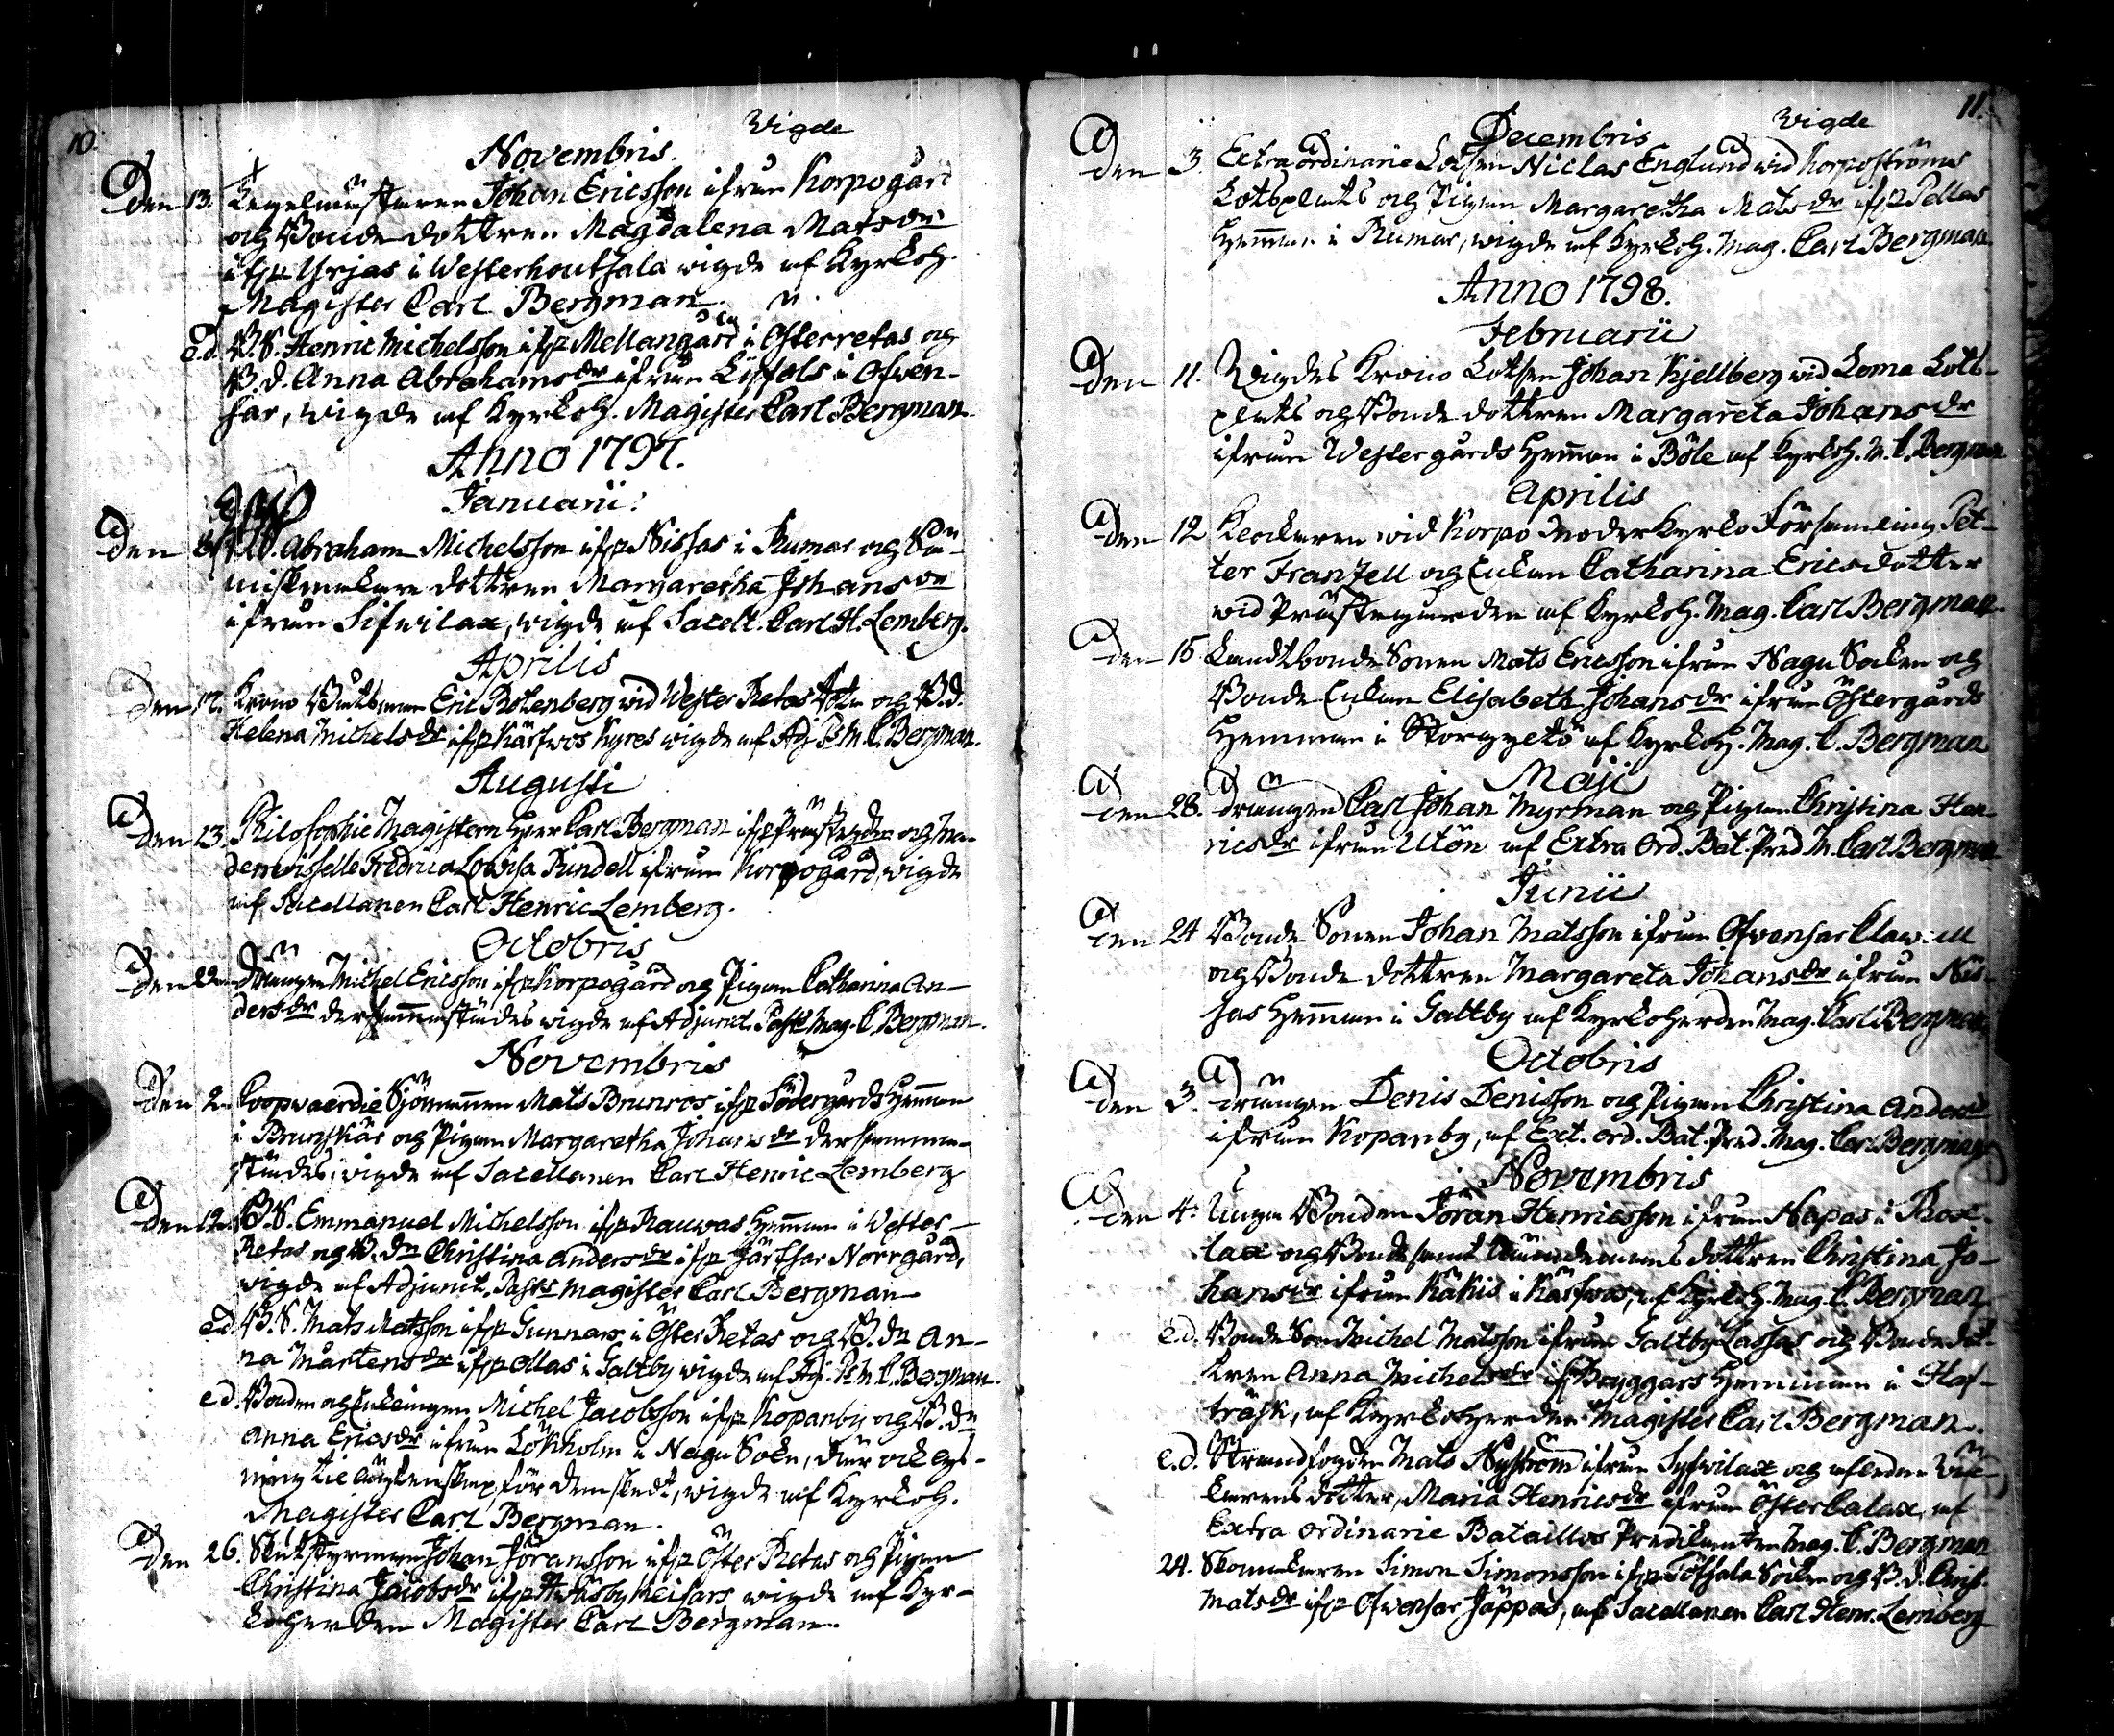 10.
Wigde
Novembris.
Den 13. Johan Ericsson ifrån Korpogård
och Bonde dottren Magdalena Matsdr
ifr. Yrjas i Westerhoutsala wigde af Kyrkoh.
Magister Carl Bergman.
e.d. B.S. Henric Michelsson ifr. Mellangård i Österretas och
B.d. Anna Abrahamsdr ifrån i Ofven-
sar, wigde af Kyrkoh. Magister Carl Bergman.
Anno 1797.
Januarii.
Den B.S. Abraham Michelsson ifr. Nissas i Rumar och
dottren Margaretha Johansdr
ifrån Sifvilax, wigde af Sacell. Carl H. Lemberg.
Aprilis
Den 17. Krono Båtsman Eric Rotenberg wid Wester Retas och B.d.
Helena Michelsdr ifr. Kärfwos Kyres wigde af Adj. P. M. C. Bergman.
Augusti
Den 13. Philosophie Magistern Herr Carl Bergman ifr. Prästegården och Ma-
demoiselle Fredrica Lovisa Pundell ifrån Korpogård, wigde
af Sacellanen Carl Henric Lemberg.
Octobris
Den 22. Drängen Michel Ericsson ifr. Korpogård och Pigan Catharina An-
dersdr dersammastädes wigde af Adjunct. Past. Mag. C. Bergman.
Novembris
Den 2. Coopvaerdie Sjömannen Mats Brunros ifr. Södergårds Hemman
i Brunskär och Pigan Margaretha Johansdr dersamma-
städes, wigde af Sacellanen Carl Henric Lemberg
Den 12. B.S. Emmanuel Michelsson ifr. Rauwas Hemman i Wester-
Retas och B.dr Christina Andersdr ifr. Järfsar Norrgård,
wigde af Adjunct. Past. Magister Carl Bergman
e.d. B.S. Mats Matsson ifr. Gunnars i Öster Retas och B.dr An-
na Mårtensdr ifr. Ollas i Galtby wigde af Adj. P. M. C. Bergman.
e.d. Bonden och Enklingen Michel Jacobsson ifr. Kopanby och B.dr
Anna Ericsdr ifrån Lökholm i Nagu Sokn, där ock lys-
ning till ägtenskap för dem skedt, wigde af Kyrkoh.
Magister Carl Bergman.
Den 26. Johan Jöransson ifr. Öster Retas och Pigan
Christina Jacobsdr ifr. wigde af Kyr-
koherden Magister Carl Bergman.
11.
Wigde
Decembris
Den 3. Extra ordinarie Lotsen Niclas Englund wid Korpoströms
Lotsplats och Pigan Margaretha Matsdr ifr. Pellas
Hemman i Rumar, wigde af Kyrkoh. Mag. Carl Bergman
Anno 1798.
Februarii
Den 11. Wigdes Krono Lotsen Johan Kjellberg wid Loma Lots-
plats och Bonde dottren Margareta Johansdr
ifrån Westergårds Hemman i Böle af Kyrkoh. M. C. Bergman
Aprilis
Den 12 Klockaren wid Korpo Moderkyrko Församling Pet-
ter Franzell och Enkan Catharina Ericsdotter
wid Prästegården af Kyrkoh. Mag. Carl Bergman.
Den 15 Landtbonde Sonen Mats Ericsson ifrån Nagu Soken och
Bonde Enkan Elisabeth Johansdr ifrån Östergårds
Hemman i Storpyetö af Kyrkoh. Mag. C. Bergman
Maji
Den 28. drängen Carl Johan Myrman och Pigan Christina Hen-
ricsdr ifrån Utön af Extra Ord. Bat. Pred M. Carl Bergman
Junii
Den 24 Bonde Sonen Johan Matsson ifrån Ofvensar
och Bonde dottren Margareta Johansdr ifrån Nis-
sas Hemman i Galtby af Kyrkoherden Mag. Carl Bergman
Octobris
Den 3. drängen Denis Denisson och Pigan Christina Andersdr
ifrån Kopanby, af Ext. Ord. Bat. Pred. Mag. Carl Bergman
Novembris
Den 4. Unga Bonden Jöran Henricsson ifrån Napas i Rox-
lax och Bonde samt Nämndemans dottren Christina Jo-
hansdr ifrån Käkis i Kärfwas, af Kyrkoh. Mag. C. Bergman
e.d. Bonde Son Michel Matsson ifrån Galtby Lassas och Bonde dot-
tren Anna Michelsdr if. Bryggars Hemman i Haf-
träsk, af Kyrkoherden Magister Carl Bergman.
e.d. Strandfogden Mats Nyström ifrån Syfvilax och aflidne
dotter, Maria Henricsdr ifrån Öster Calax, af
Extra Ordinarie Bataillos Predikanten Mag. C. Bergman
24. Skomakaren Simon Simonsson ifr. Töfsala Soken och B.d. Chris.
Matsdr ifr. Ofvensar Jäppas, af Sacellanen Carl Henr. Lemberg